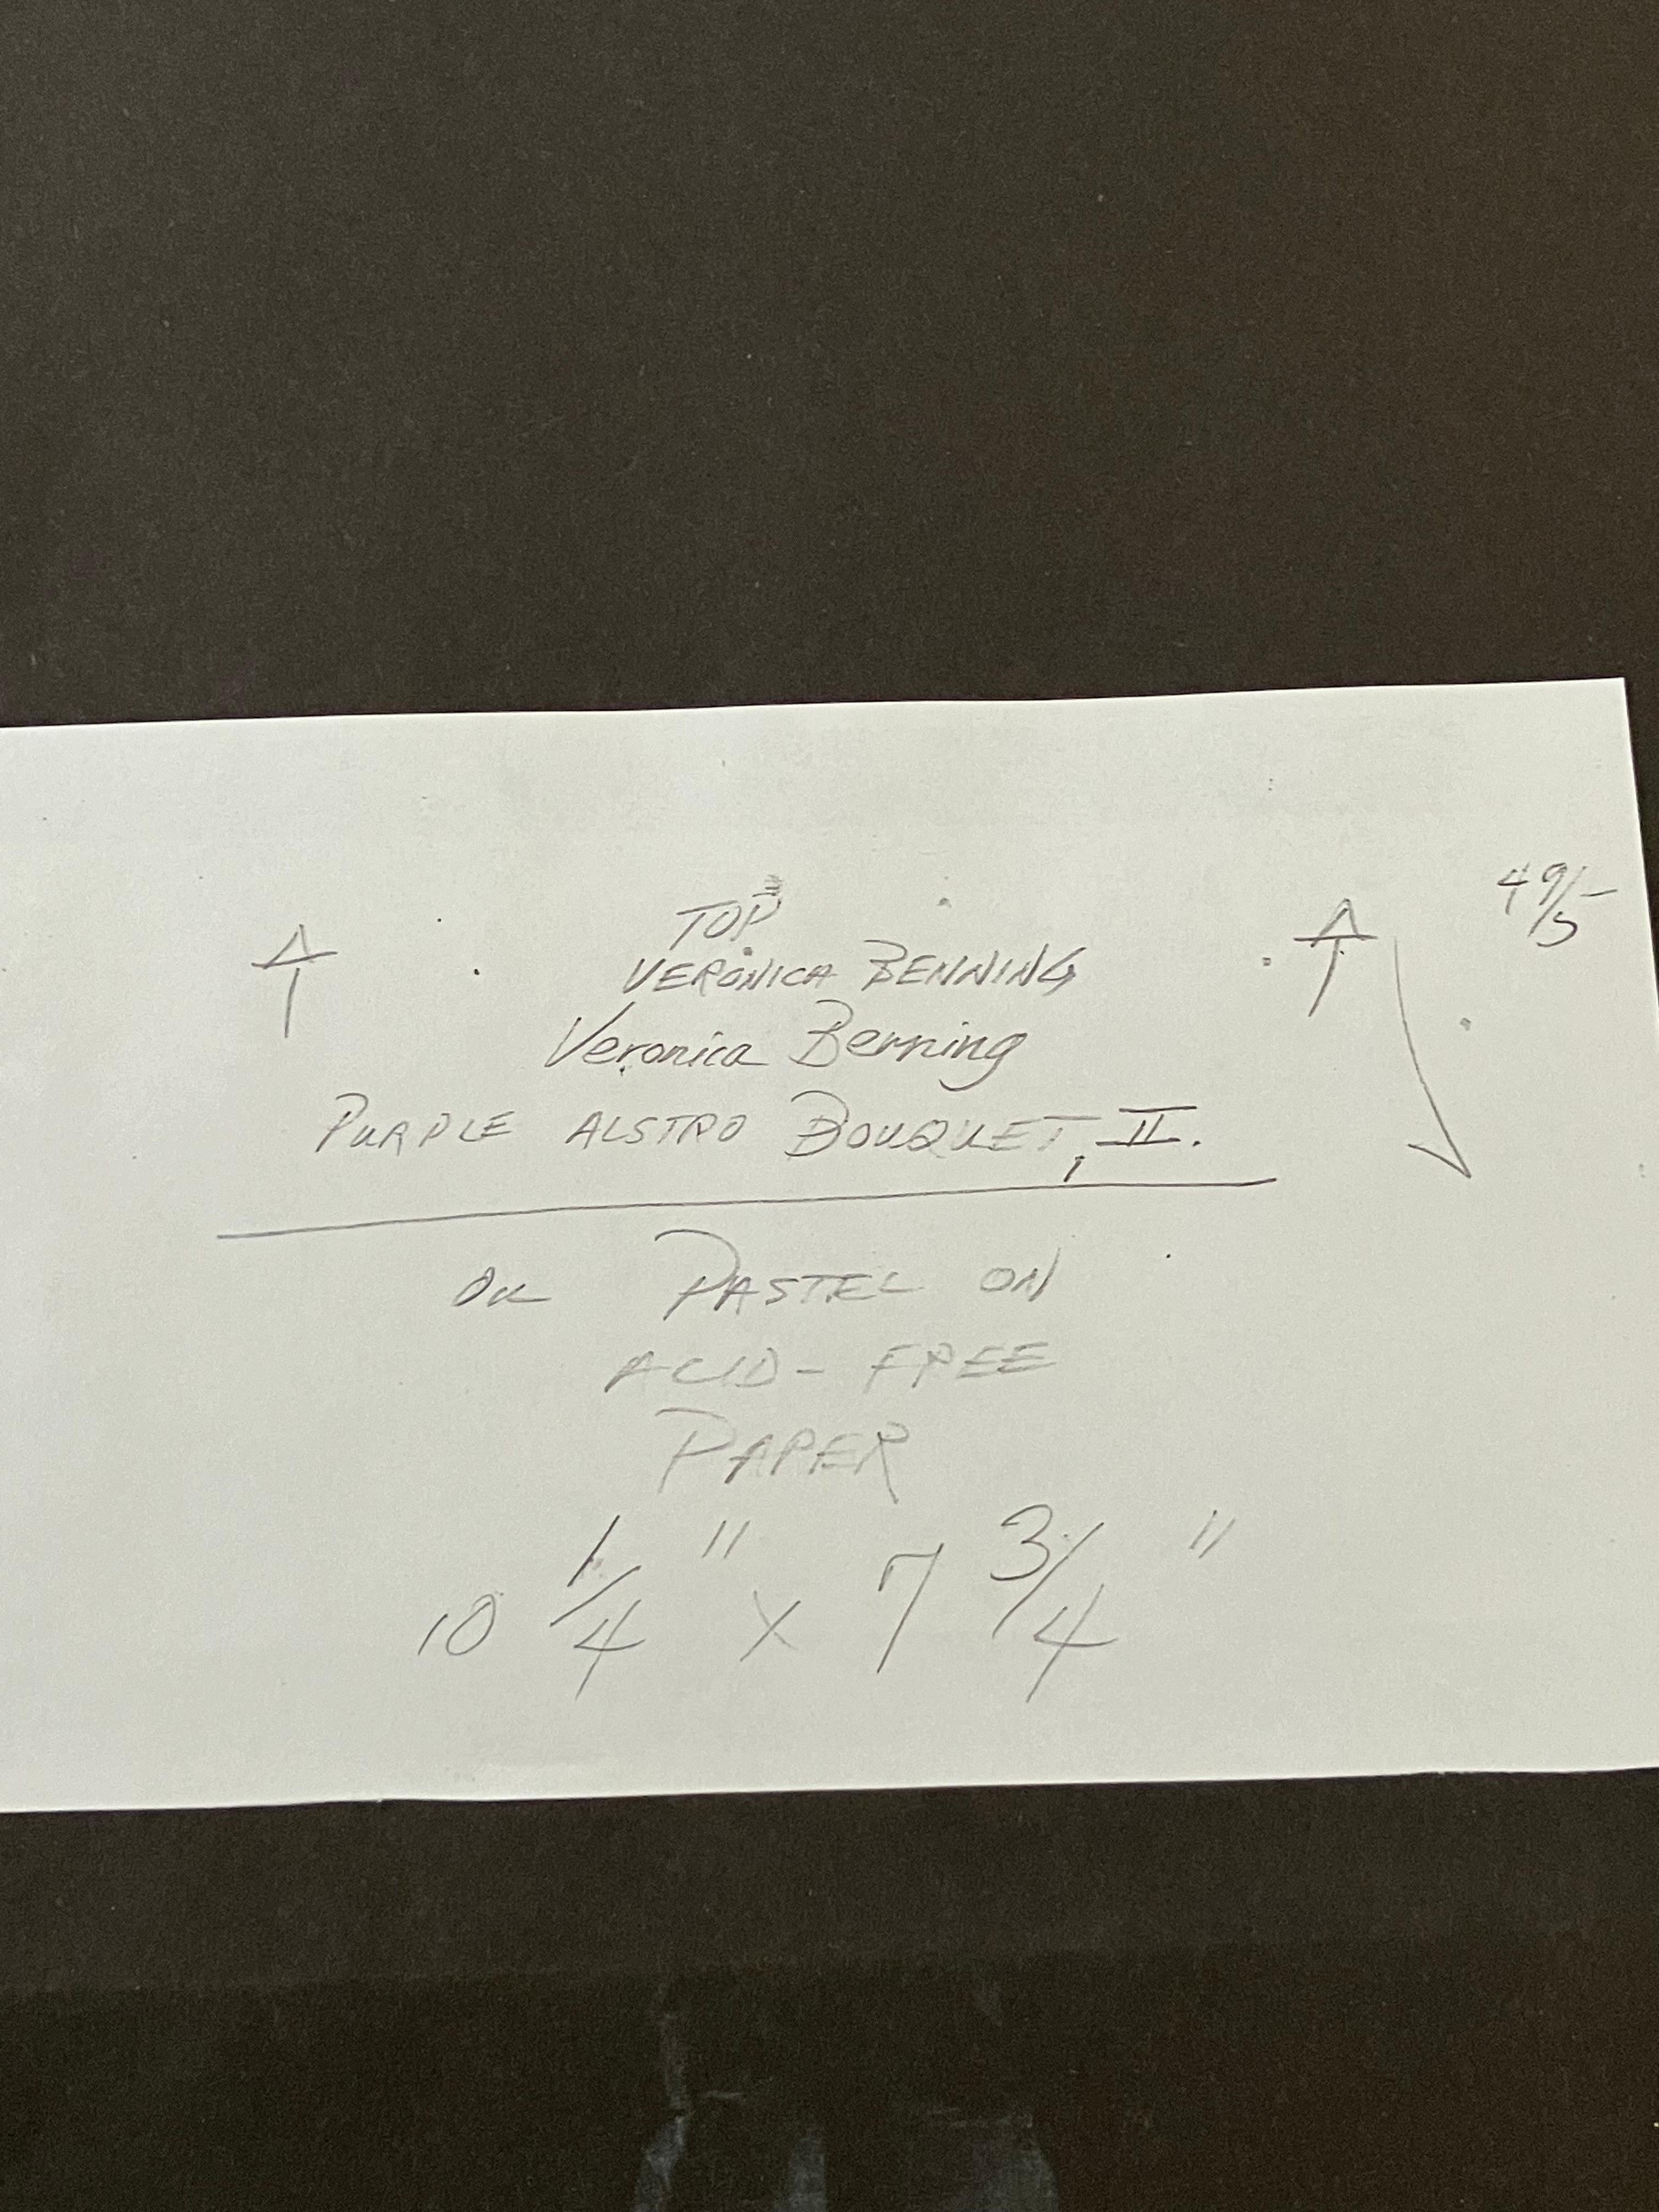 TOP
VERONICA BENNING
Veronica Benning
PURPLE ALSTRO BOUQUET, II.
OIL PASTEL ON
ACID-FREE
PAPER
10 1/4" x 7 3/4"